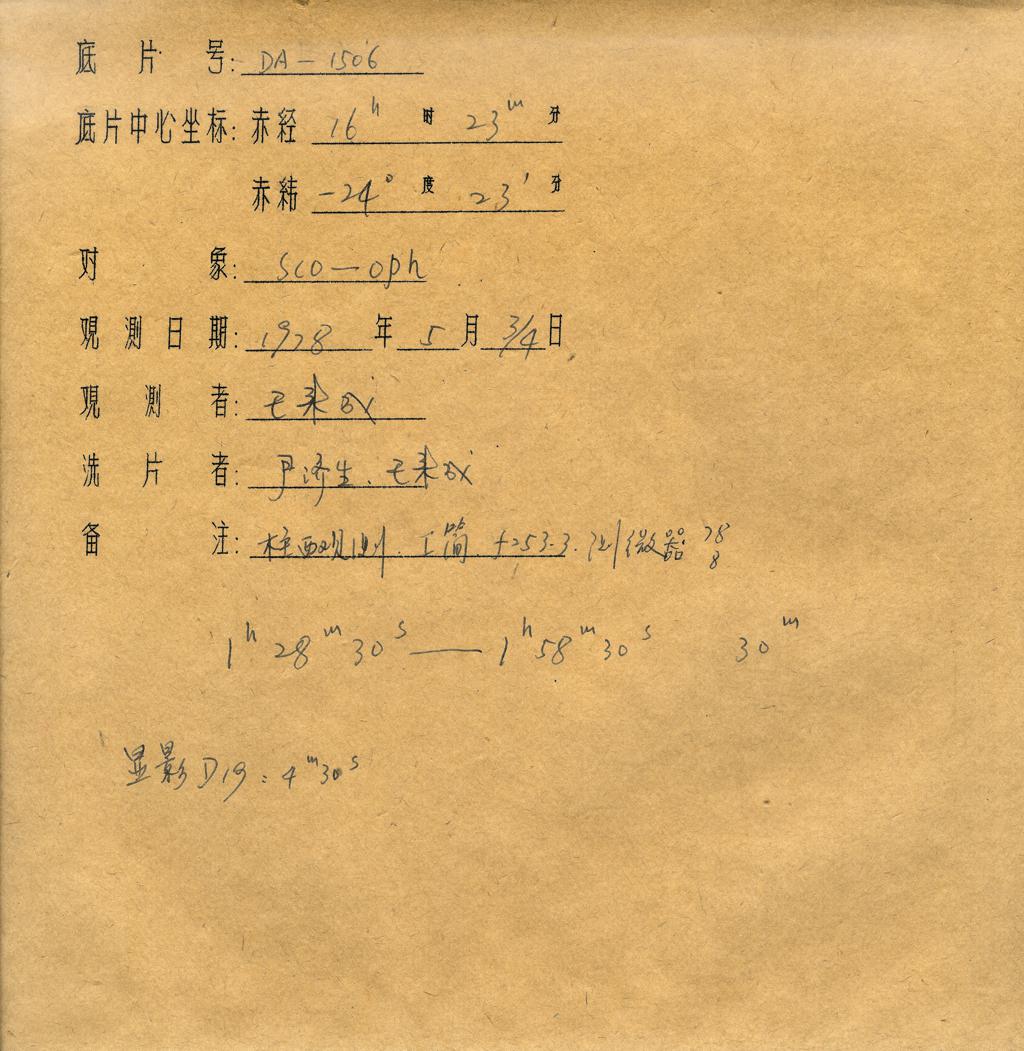 底片号: DA-1506
底片中心坐标: 赤经 16h 时 23m 分
赤纬 -24° 度 23' 分
对象: SCO-oph
观测日期: 1978 年 5 月 3/4 日
观测者:
洗片者: 尹济生、
备注: 柱西观测. 工筒 f253.3. 测微器 78
8
1h 28m 30s — 1h 58m 30s 30m
显影 D19: 4m30s